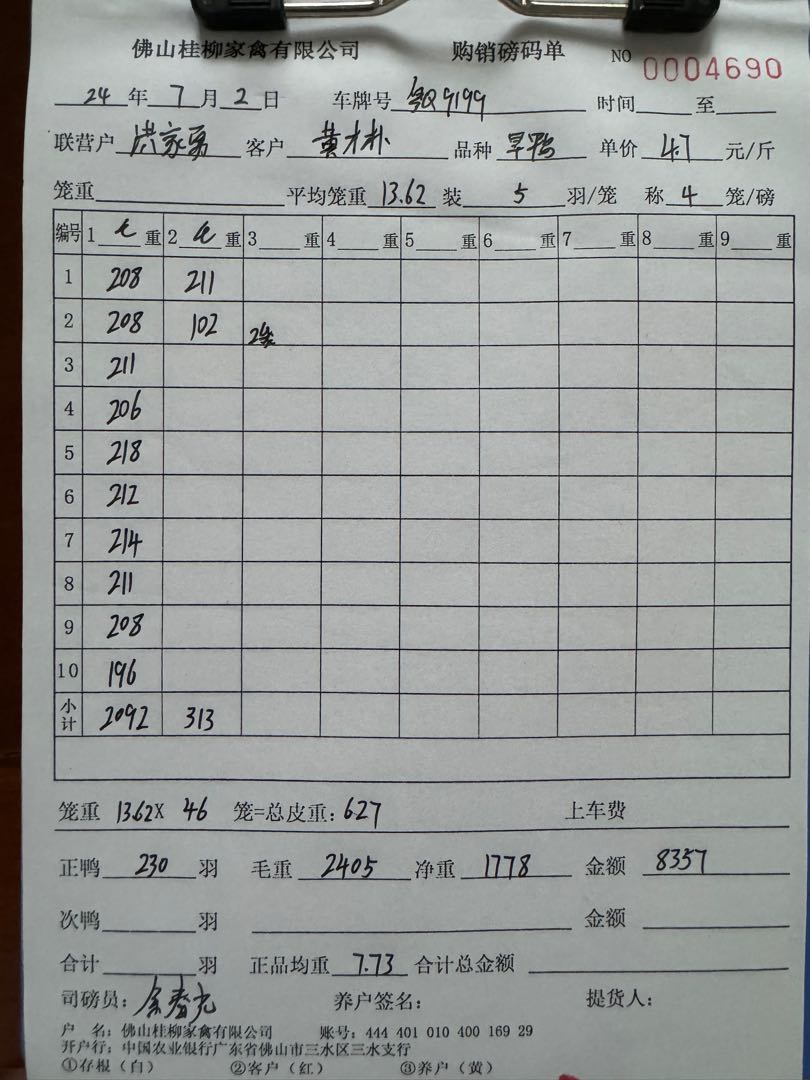 佛山桂柳家禽有限公司 购销磅码单 NO 0004690
24年7月2日 车牌号 粤Q9199 时间 至
联营户 洪家勇 客户 黄才朴 品种 旱鸭 单价 4.7 元/斤
笼重 平均笼重 13.62 装 5 羽/笼 称 4 笼/磅
编号 1 毛 重 2 毛 重 3 重 4 重 5 重 6 重 7 重 8 重 9 重
1 208 211
2 208 102 2笼
3 211
4 206
5 218
6 212
7 214
8 211
9 208
10 196
小计 2092 313
笼重 13.62X 46 笼=总皮重: 627 上车费
正鸭 230 羽 毛重 2405 净重 1778 金额 8357
次鸭 羽 金额
合计 羽 正品均重 7.73 合计总金额
司磅员: 养户签名: 提货人:
户 名: 佛山桂柳家禽有限公司 账号: 444 401 010 400 169 29
开户行: 中国农业银行广东省佛山市三水区三水支行
①存根(白) ②客户(红) ③养户(黄)